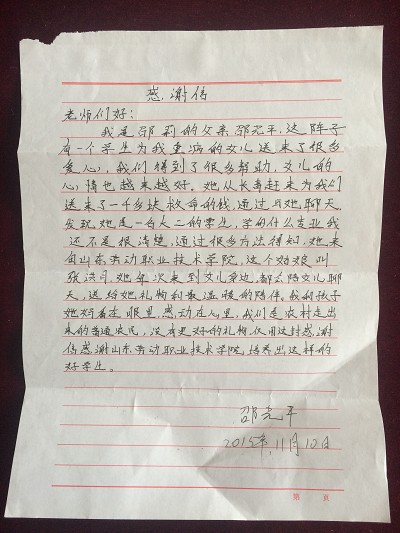 感谢信
老师们好：
我是邵莉的父亲邵光平，这阵子
有一个学生为我重病的女儿送来了很多
爱心，我们得到了很多帮助，女儿的
心情也越来越好。她从长清赶来为我们
送来了一千多块救命的钱通过与她聊天
发现她是一名大二的学生，学的什么专业我
还不是很清楚，通过很多方法得知，她来
自山东劳动职业技术学院，这个姑娘叫
张洪月，她每次来到女儿身边，都会陪女儿聊
天，送给她礼物和最温暖的陪伴。我和孩子
她妈看在眼里，感动在心里，我们是农村走出
来的普通农民，没有更好的礼物，仅用这封感谢
信感谢山东劳动职业技术学院，培养出这样的
好学生。
邵光平
2015年，11月10日
第 页